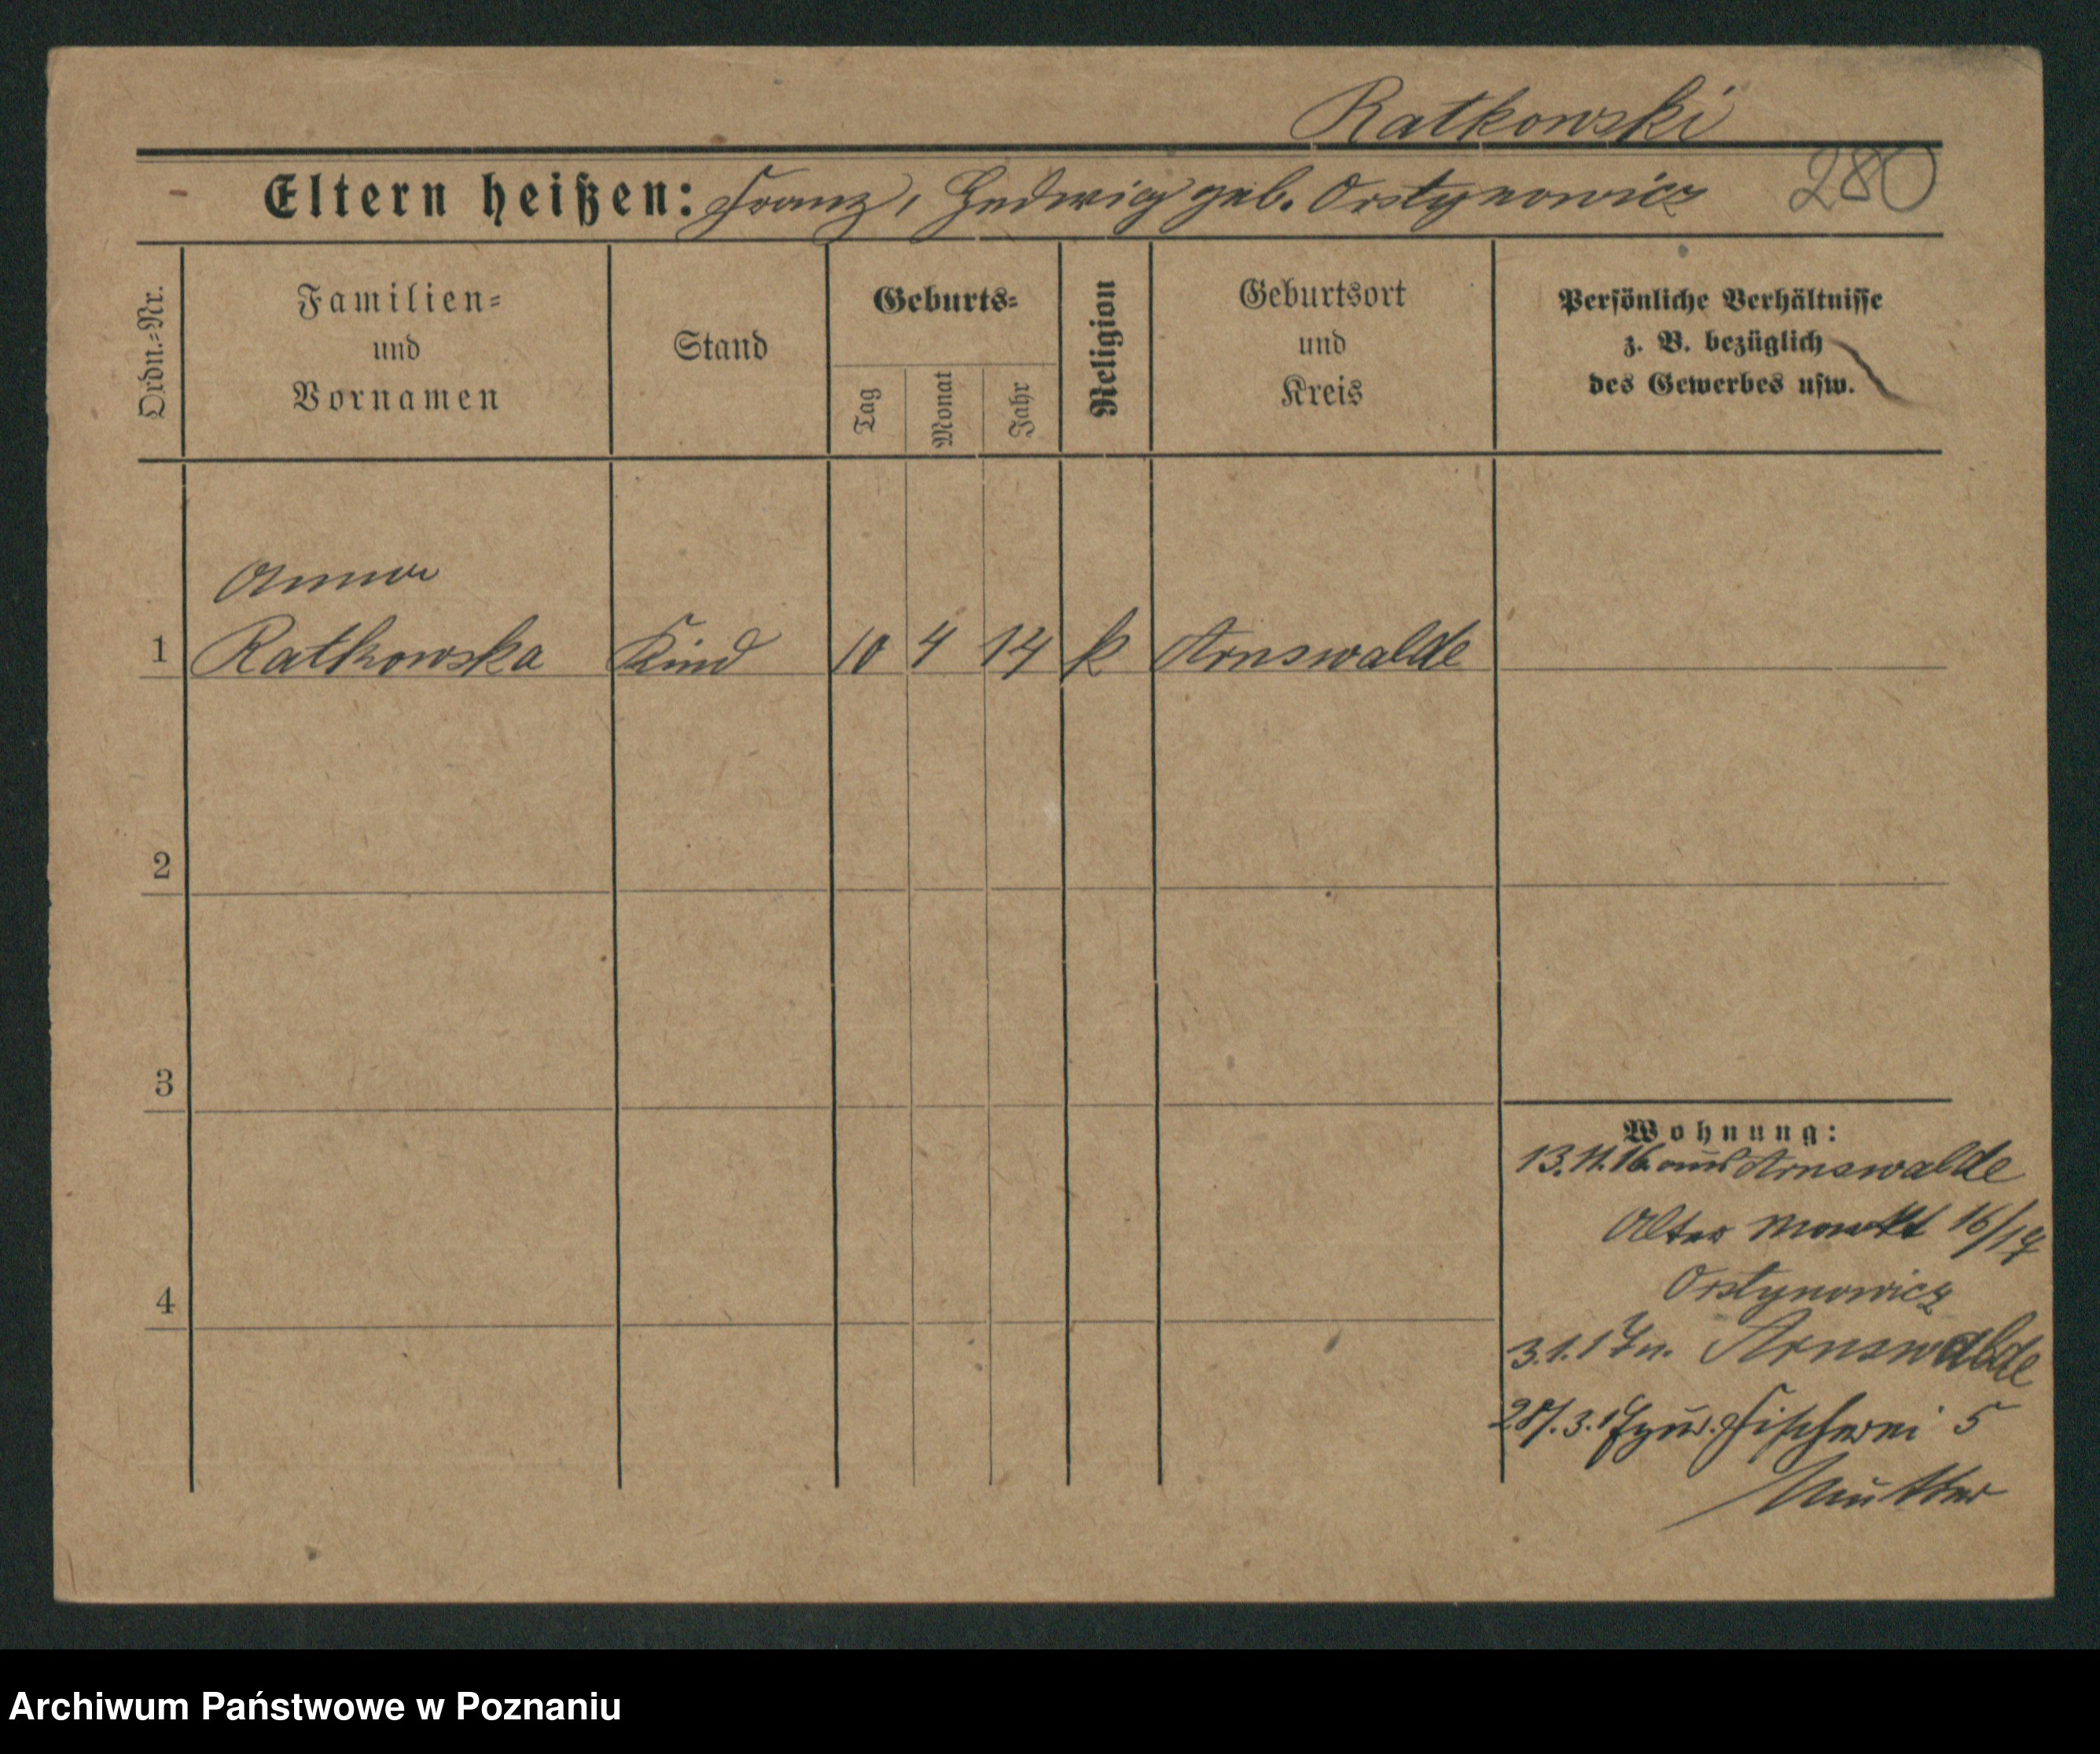 Ratkowski
280
Eltern heißen: Franz, Hedwig geb. Orstynowicz
Ordn.=Nr.
Familien=
und
Vornamen
Stand
Geburts=
Tag
Monat
Jahr
Religion
Geburtsort
und
Kreis
Persönliche Verhältnisse
z. B. bezüglich
des Gewerbes usw.
Anna
1 Ratkowska Kind 10 4 14 k Arnswalde
2
3
Wohnung:
13.11.16. aus Arnswalde
Alter Markt 16/17
Orstynowicz
4
3.1.17 n. Arnswalde
28/.3.17 zur. Fischerei 5
Mutter
Archiwum Państwowe w Poznaniu